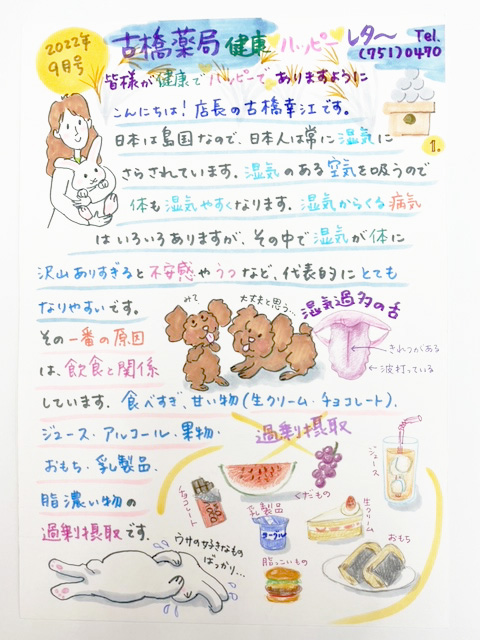 2022年
9月号
古橋薬局 健康ハッピーレター
Tel.
(751)0470
皆様が健康でハッピーでありますように
こんにちは!店長の古橋幸江です。
1.
日本は島国なので、日本人は常に湿気に
さらされています。湿気のある空気を吸うので
体も湿気やすくなります。湿気からくる病気
はいろいろありますが、その中で湿気が体に
沢山ありすぎると不安感やうつなど、代表的にとても
なりやすいです。
みて
大丈夫と思う…
湿気過多の舌
きれつがある
波打っている
その一番の原因
は、飲食と関係
しています。食べすぎ、甘い物(生クリーム・チョコレート)、
ジュース・アルコール・果物・
おもち・乳製品・
脂濃い物の
過剰摂取です。
過剰摂取
チョコレート
くだもの
ジュース
乳製品
ヨーグル
生クリーム
脂っこいもの
おもち
ウサの好きなもの
ばっかり…